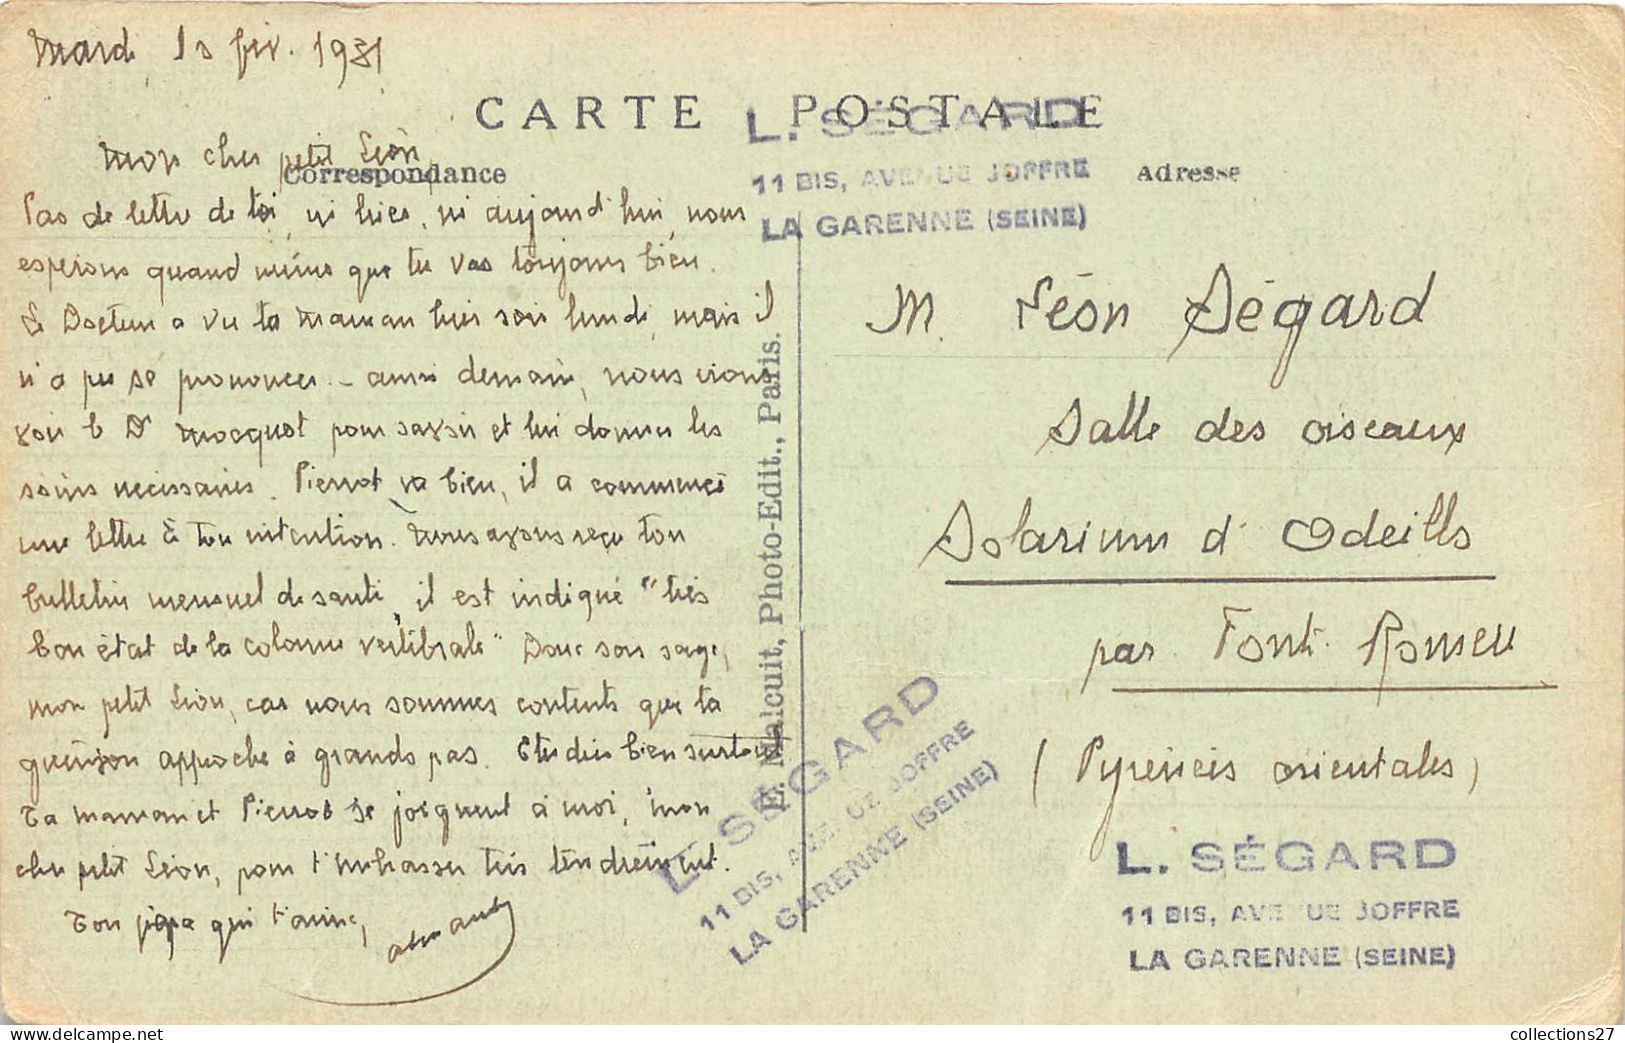 Mardi 10 fév. 1931
CARTE POSTALE
Correspondance
Adresse
Mon cher petit Léon,
Pas de lettre de toi, ni hier, ni aujourd'hui, nous
espérons quand même que tu vas toujours bien.
Le Docteur a vu ta maman hier soir lundi, mais il
n'a pu se prononcer - aussi demain, nous irons
voir le Dr Mocquot pour savoir et lui donner les
soins nécessaires. Pierrot va bien, il a commencé
une lettre à ton intention. Nous avons reçu ton
bulletin mensuel de santé, il est indiqué "très
bon état de la colonne vertébrale" Donc sois sage,
mon petit Léon, car nous sommes contents que ta
guérison approche à grands pas. Etudie bien surtout
Ta maman et Pierrot se joignent à moi, mon
cher petit Léon, pour t'embrasser très tendrement.
Ton papa qui t'aime,
E. Malcuit, Photo-Edit., Paris.
L. SÉGARD
11 BIS, AVENUE JOFFRE
LA GARENNE (SEINE)
M. Léon Ségard
Salle des oiseaux
Solarium d'Odeillo
par Font-Romeu
(Pyrénées orientales)
L. SÉGARD
11 BIS, AVENUE JOFFRE
LA GARENNE (SEINE)
L. SÉGARD
11 BIS, AVENUE JOFFRE
LA GARENNE (SEINE)
www.delcampe.net
collections27